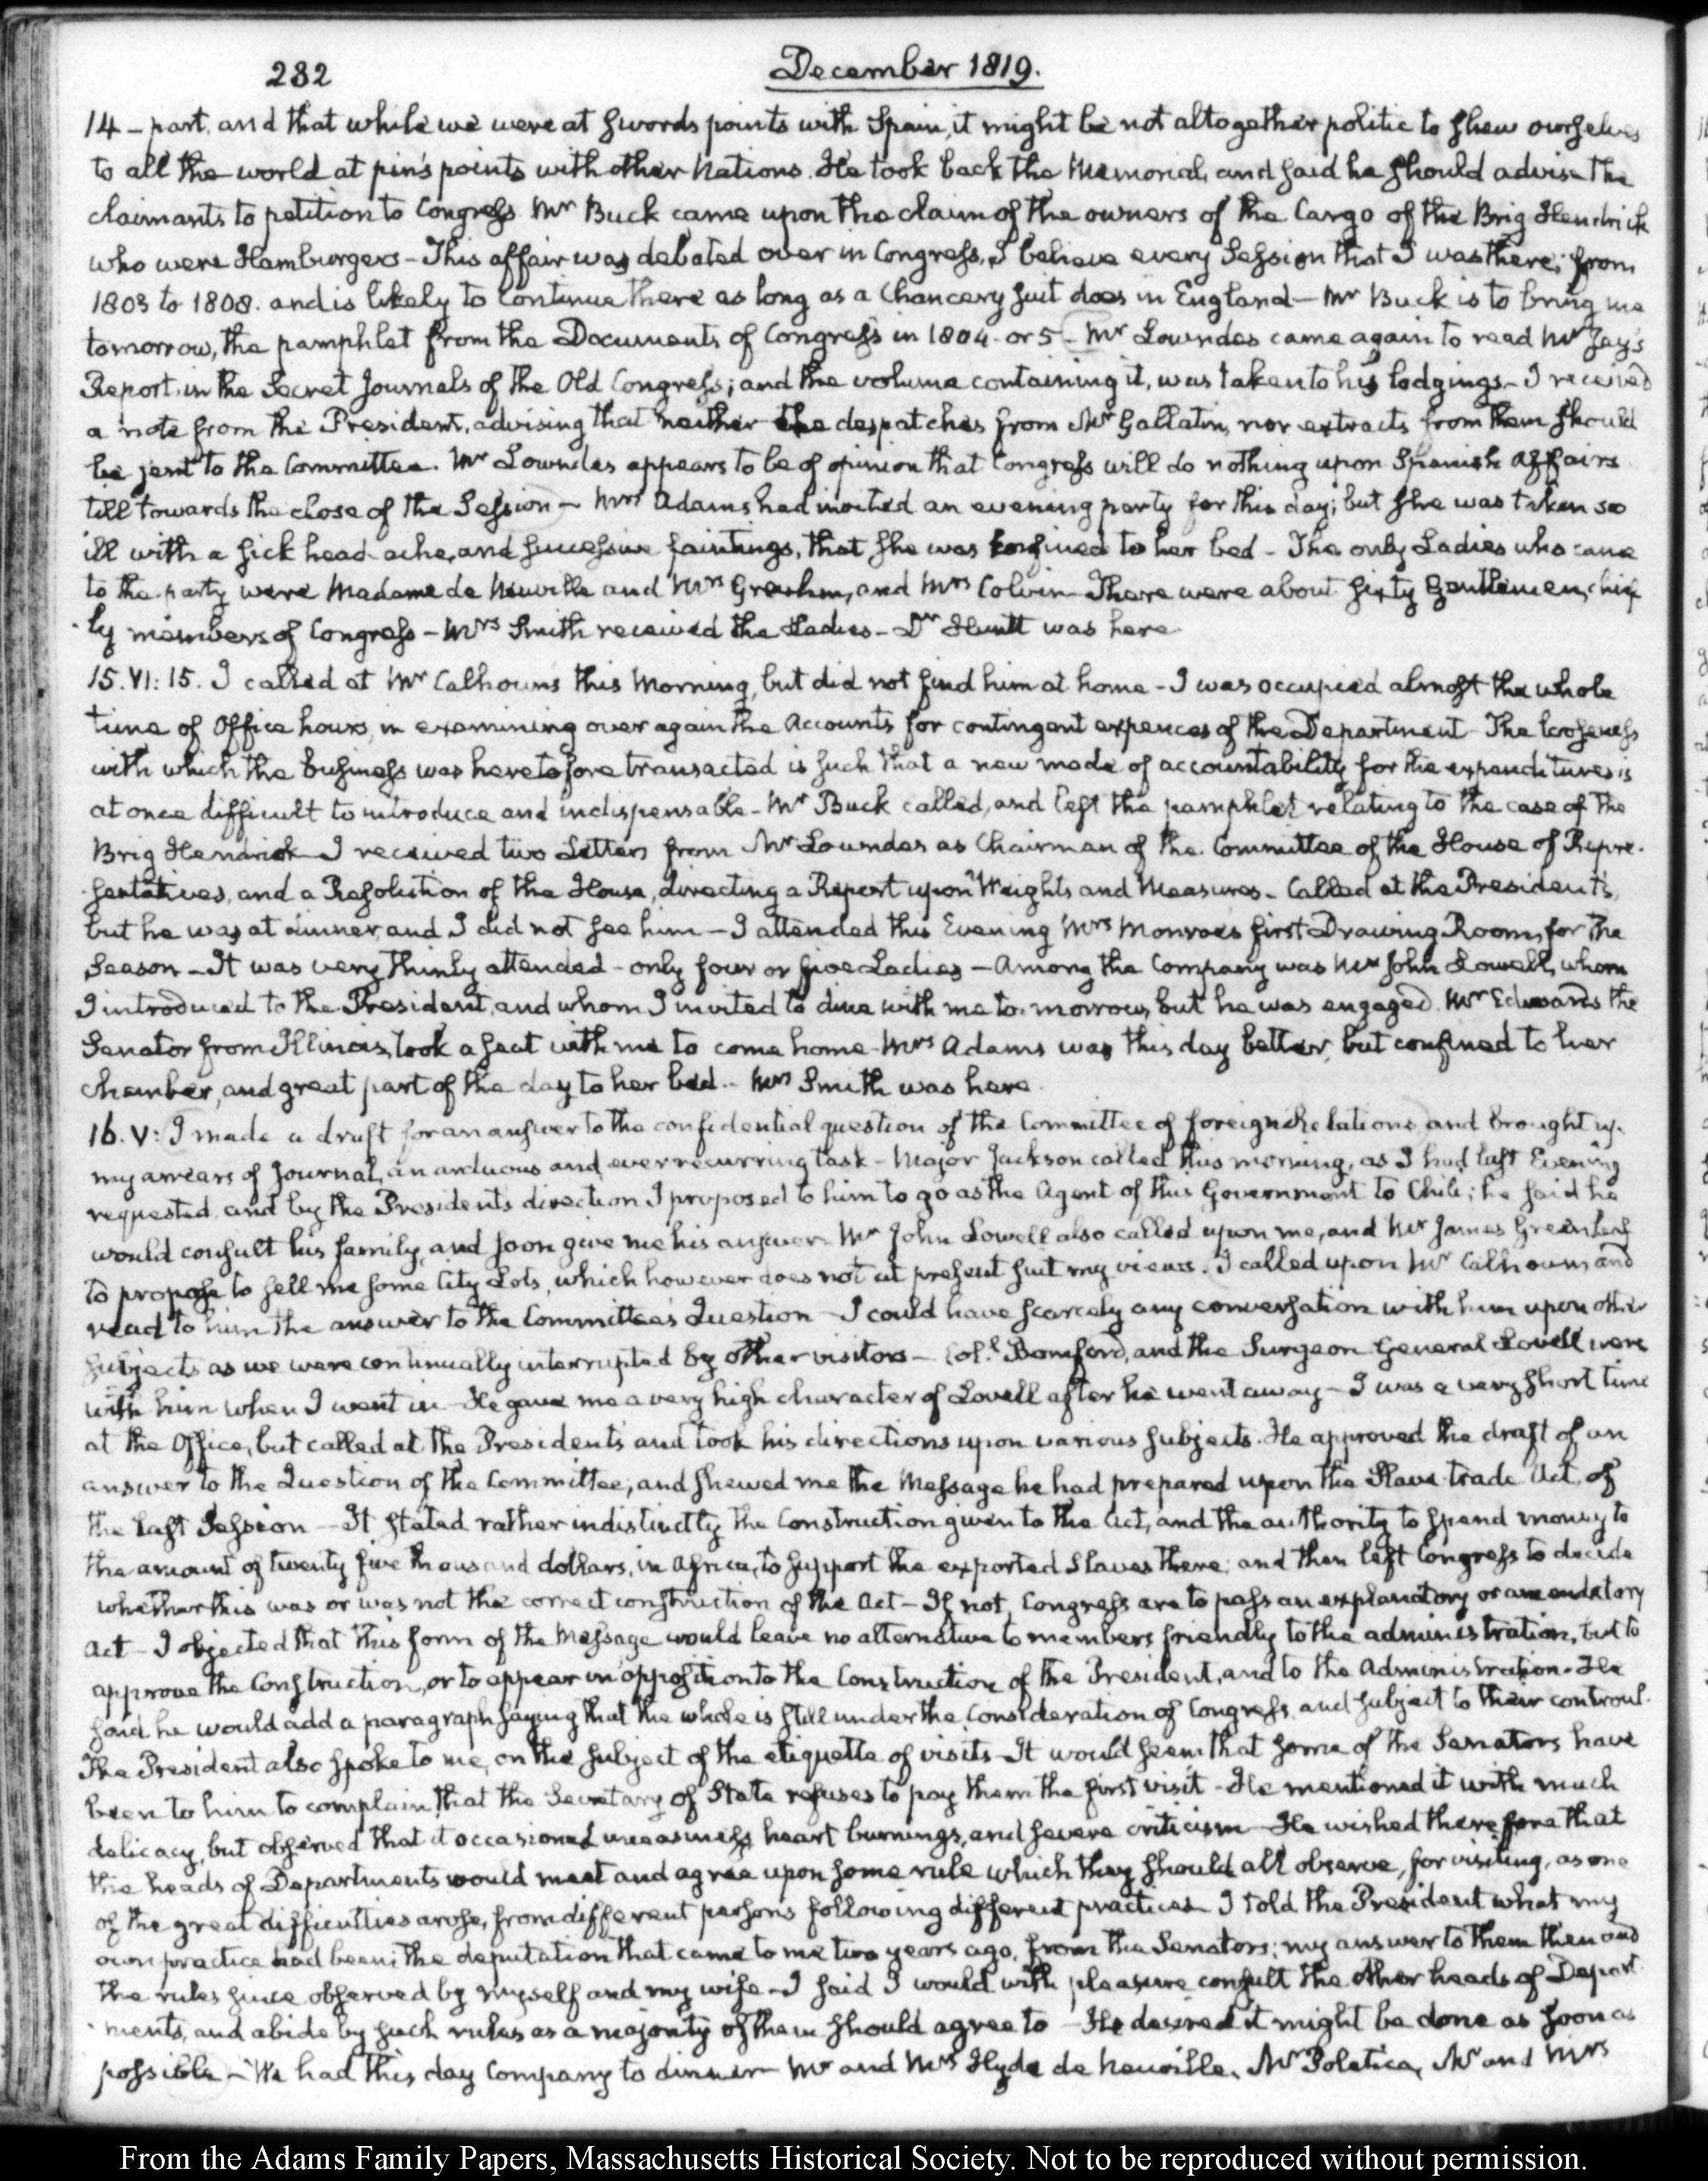 282
December 1819.
14 - part, and that while we were at swords points with Spain, it might be not altogether politic to shew ourselves
to all the world at pin's points with other Nations. He took back the Memorial, and said he should advise the
claimants to petition to Congress. Mr Buck came upon the claim of the owners of the Cargo of the Brig Hendrick
who were Hamburgers - This affair was debated over in Congress, I believe every Session that I was there; from
1803 to 1808. and is likely to continue there as long as a Chancery suit does in England - Mr Buck is to bring me
tomorrow, the pamphlet from the Documents of Congress in 1804. or 5 - Mr Lowndes came again to read Mr Jay's
Report, in the Secret Journals of the Old Congress; and the volume containing it, was taken to his lodgings - I received
a note from the President, advising that neither the despatches from Mr Gallatin, nor extracts from them should
be sent to the Committee. Mr Lowndes appears to be of opinion that Congress will do nothing upon Spanish affairs
till towards the close of the Session - Mrs Adams had invited an evening party for this day; but she was taken so
ill with a sick head-ache, and successive faintings, that she was confined to her bed - The only Ladies who came
to the party were Madame de Neuville and Mrs Graham, and Mrs Colvin - There were about sixty Gentlemen, chief
ly members of Congress - Mrs Smith received the Ladies - Dr Huntt was here.
15. VI: 15. I called at Mr Calhoun's this Morning, but did not find him at home - I was occupied almost the whole
time of Office hours, in examining over again the Accounts for contingent expences of the Department - The looseness
with which the business was heretofore transacted is such that a new mode of accountability for the expenditures is
at once difficult to introduce and indispensable - Mr Buck called, and left the pamphlet relating to the case of the
Brig Hendrick - I received two Letters from Mr Lowndes as Chairman of the Committee of the House of Repre-
sentatives, and a Resolution of the House, directing a Report upon Weights and Measures - Called at the President's,
but he was at dinner, and I did not see him - I attended this Evening Mrs Monroe's first Drawing Room, for the
Season - It was very thinly attended - only four or five Ladies - Among the Company was Mr John Lowell, whom
I introduced to the President, and whom I invited to dine with me to-morrow, but he was engaged. Mr Edwards the
Senator from Illinois, took a seat with me to come home - Mrs Adams was this day better, but confined to her
chamber, and great part of the day to her bed - Mrs Smith was here.
16. V: I made a draft for an answer to the confidential question of the Committee of foreign Relations, and brought up
my arrears of Journal, an arduous and ever recurring task - Major Jackson called this morning, as I had last Evening
requested, and by the President's direction I proposed to him to go as the Agent of this Government to Chili; he said he
would consult his family, and soon give me his answer - Mr John Lowell also called upon me, and Mr James Greenleaf
to propose to sell me some City Lots, which however does not at present suit my views. I called upon Mr Calhoun and
read to him the answer to the Committee's Question - I could have scarcely any conversation with him upon other
subjects as we were continually interrupted by other visitors - Coll. Bomford, and the Surgeon General Lovell were
with him when I went in - He gave me a very high character of Lovell after he went away - I was a very short time
at the Office, but called at the President's and took his directions upon various subjects. He approved the draft of an
answer to the Question of the Committee; and shewed me the Message he had prepared upon the Slave-trade Act, of
the last Session - It stated rather indistinctly the Construction given to the Act, and the authority to spend money to
the amount of twenty five thousand dollars, in Africa, to support the exported Slaves there; and then left Congress to decide
whether this was or was not the correct construction of the Act - If not, Congress are to pass an explanatory or amendatory
Act - I objected that this form of the Message would leave no alternative to members friendly to the administration, but to
approve the Construction, or to appear in opposition to the Construction of the President, and to the Administration - He
said he would add a paragraph saying that the whole is still under the Consideration of Congress, and subject to their controul.
The President also spoke to me, on the subject of the etiquette of visits - It would seem that some of the Senators have
been to him to complain that the Secretary of State refuses to pay them the first visit - He mentioned it with much
delicacy, but observed that it occasioned uneasiness, heart burnings, and severe criticism - He wished therefore that
the heads of Departments would meet and agree upon some rule which they should all observe, for visiting, as one
of the great difficulties arose, from different persons following different practices - I told the President what my
own practice had been; the deputation that came to me two years ago, from the Senators; my answer to them then and
the rules since observed by myself and my wife - I said I would with pleasure consult the other heads of Depart-
ments, and abide by such rules as a majority of them should agree to - He desired it might be done as soon as
possible - We had this day Company to dinner Mr and Mrs Hyde de Neuville, Mr Poletica, Mr and Mrs
From the Adams Family Papers, Massachusetts Historical Society. Not to be reproduced without permission.